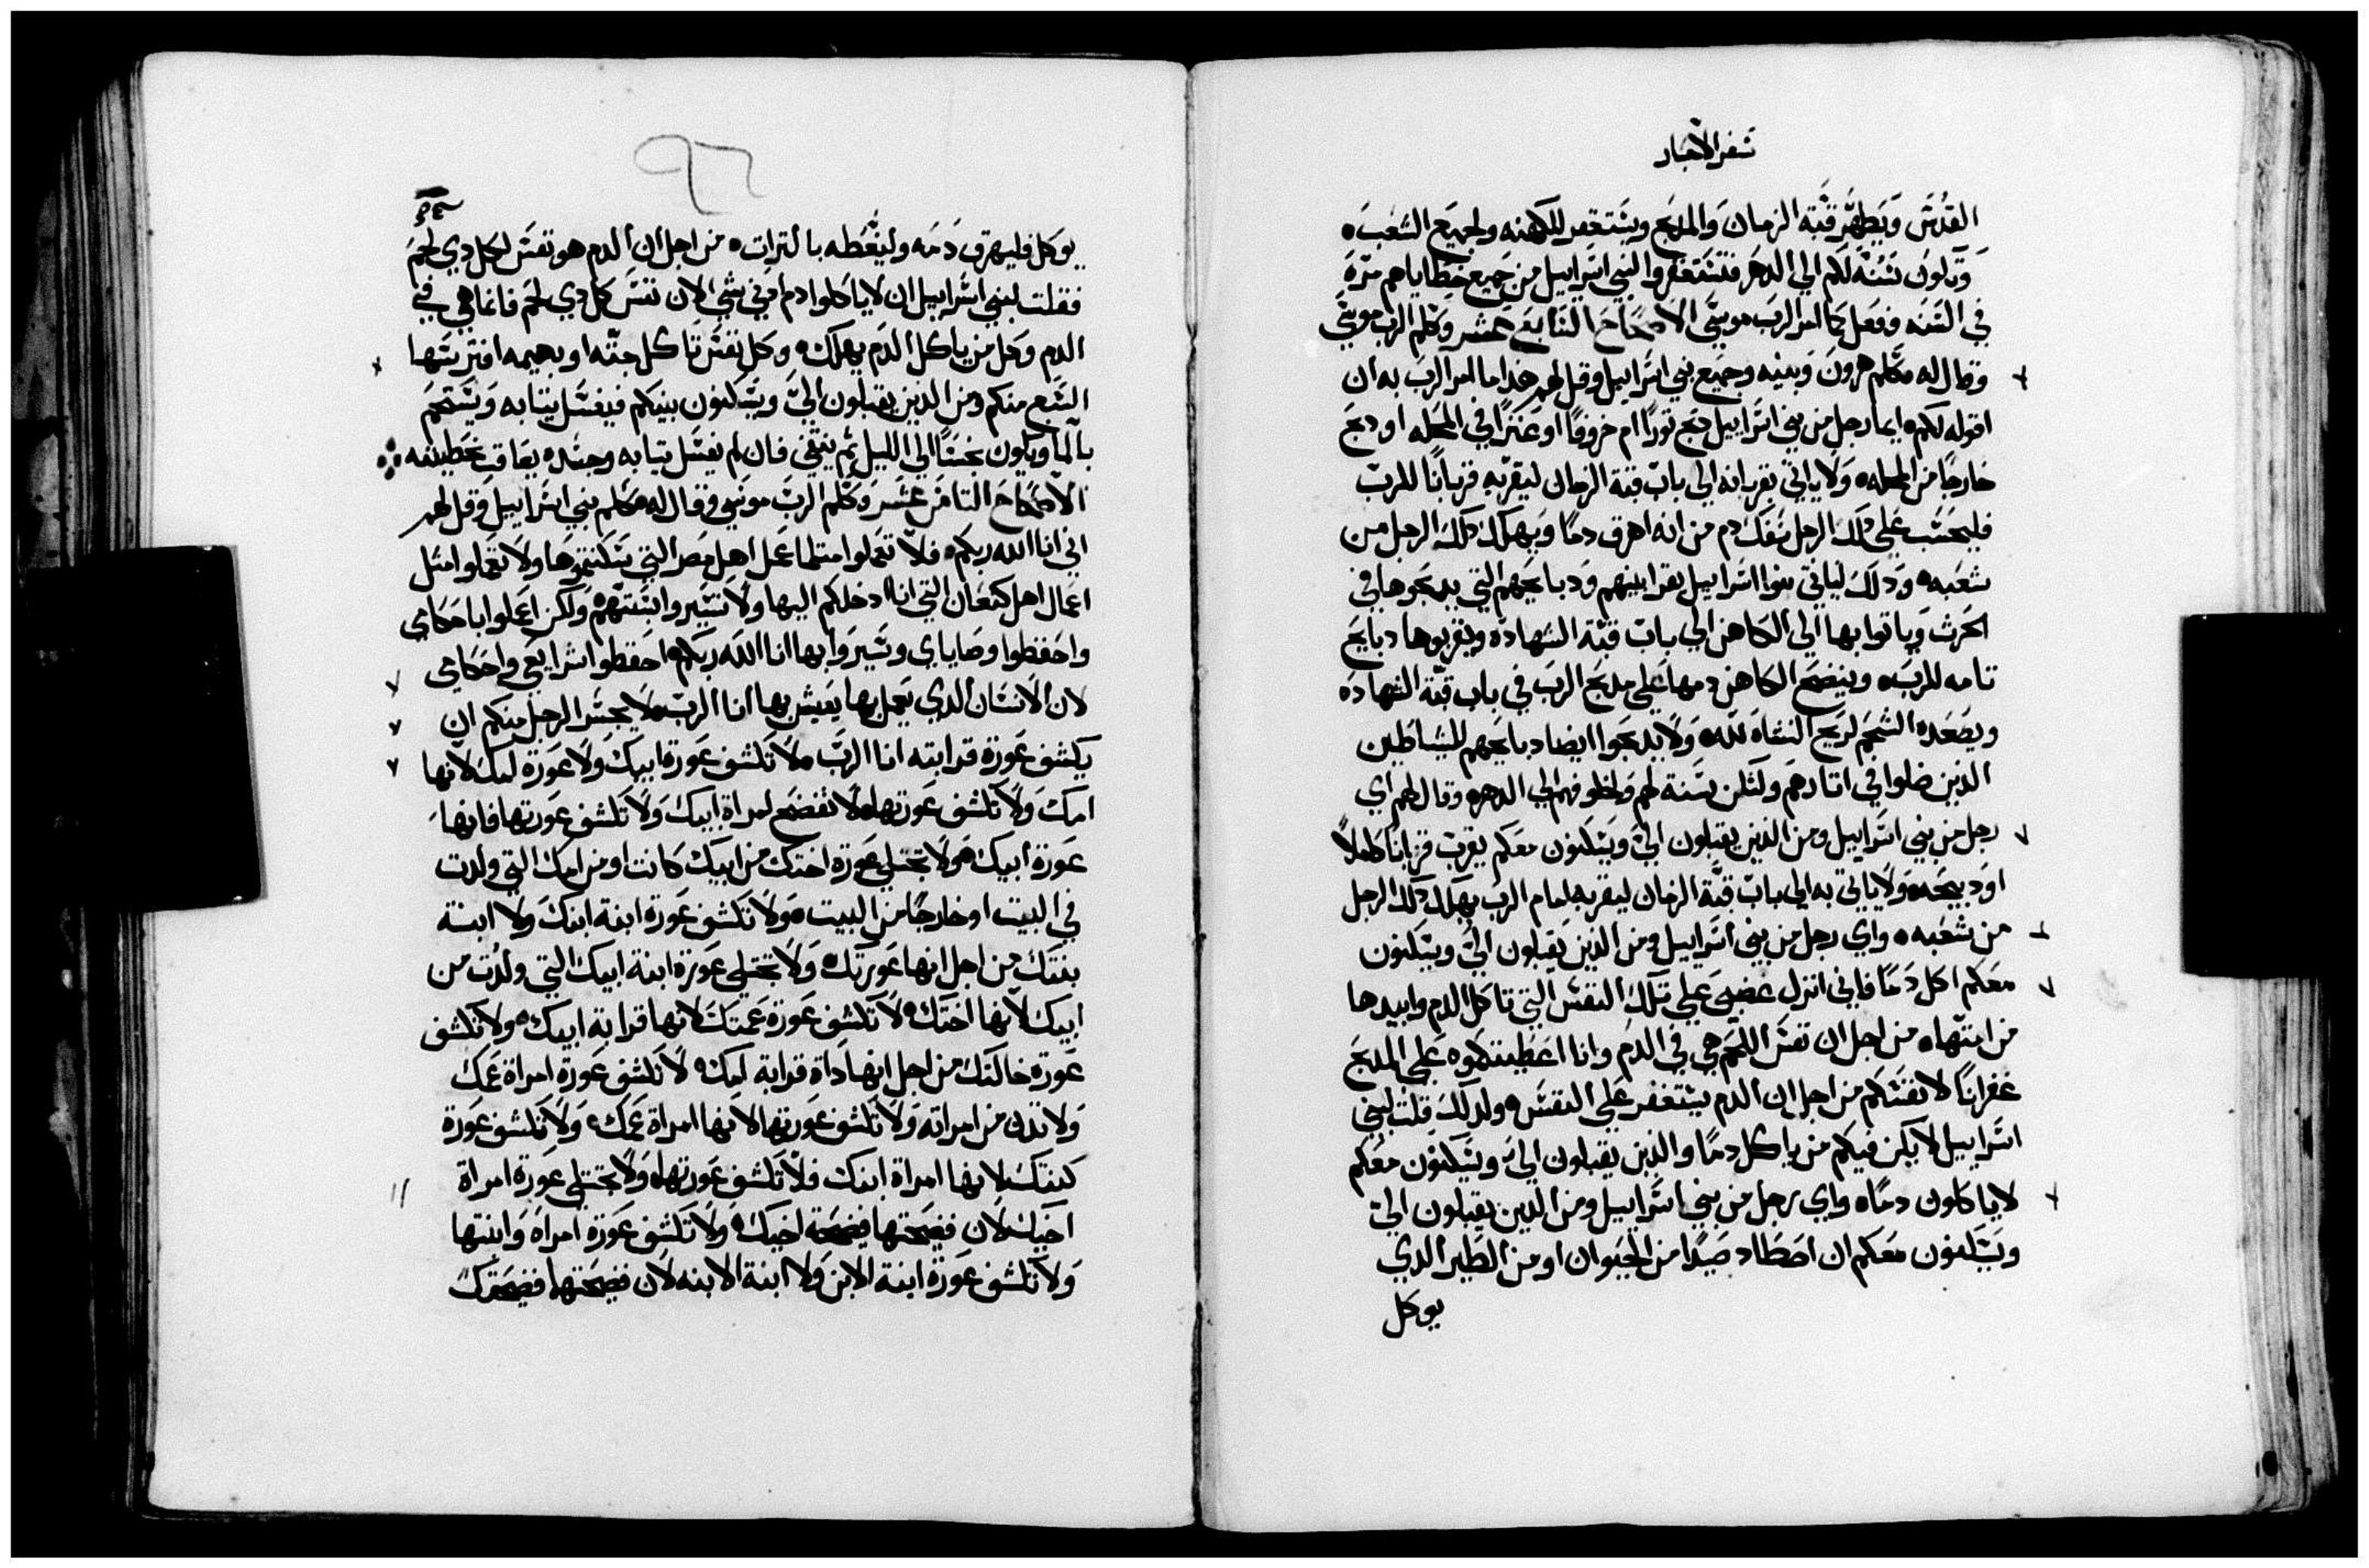 سفر الاحبار
القدس ويطهر قبة الزمان والمدبح ويستغفر للكهنه ولجميع الشعب ه
وتكون سنة لكم الي الدهر فتستغفروا لبني اسراييل من جميع خطاياهم مرة
في السنه ففعل كما امر الرب موسي الاصحاح السابع عشر وكلم الرب موسي
وقال له كلم هرون وبنيه وجميع بني اسراييل وقل لهم هذا ما امر الرب به ان
اقوله لكم ه ايما رجل من بني اسراييل دبح تورا ام خروفا او عنزا في المحله او دبح
خارجا من المحله ه ولا ياتي بقربانه الي باب قبة الزمان ليقربه قربانا للرب
فليحسب علي دلك الرجل سفك دم من انه اهرق دما ويهلك دلك الرجل من
شعبه ه ودلك لياتي بنوا اسراييل بقرابينهم ودبايحهم التي يدبحوها في
الحرث وياتوا بها الي الكاهن الي باب قبة الشهادة ويقربوها دبايح
تامه للرب ه وينضح الكاهن دمها علي مدبح الرب في باب قبة الشهادة
ويصعده الشحم لريح النشاه لله ه ولا يدبحوا ايضا دبايحهم للشياطين
الذين ضلوا في اتارهم ولتكن سنة لهم ولخلوفهم الي الدهر ه وقال لهم اي
رجل من بني اسراييل ومن الذين يقبلون الي ويسكنون معكم يقرب قربانا كاملا
او دبيحه ه ولا ياتي به الي باب قبة الزمان ليقربه امام الرب يهلك دلك الرجل
من شعبه ه واي رجل من بني اسراييل ومن الذين يقبلون الي ويسكنون
معكم اكل دما فاني انزل غضبي علي تلك النفس التي تاكل الدم وابيدها
من امتها ه من اجل ان نفس اللحم هي في الدم وانا اعطيتكموه علي المدبح
غفرانا لانفسكم من اجل ان الدم يستغفر علي النفس ه ولدلك قلت لبني
اسراييل لا يكن فيكم من ياكل دما والذين يقبلون الي ويسكنون معكم
لا ياكلون دما ه واي رجل من بني اسراييل ومن الدين يقبلون الي
ويسكنون معكم ان اصطاد صيدا من الحيوان او من الطير الدي
يوكل
٩٦
يوكل فليهرق دمه وليغطه بالتراب ه من اجل ان الدم هو نفس لكل دي لحم
فقلت لبني اسراييل ان لا ياكلوا دم من شي لان نفس كل دي لحم فانما هي في
الدم وكل من ياكل الدم يهلك ه وكل نفس تاكل جته او بهيمه افترستها
السبع منكم ومن الذين يقبلون الي ويسكنون بينكم فيغسل تيابه ويستحم
بالما ويكون نجسا الي الليل ثم ينقي فان لم يغسل تيابه وجسده يعاقب بخطيته
الاصحاح التامن عشر وكلم الرب موسي وقال له كلم بني اسراييل وقل لهم
اني انا الله ربكم ه فلا تعملوا متلما عمل اهل مصر التي سكنتموها ولا تعملوا امثل
اعمال اهل كنعان التي انا ادخلكم اليها ولا تسيروا بسنتهم ه ولكن اعملوا باحكامي
واحفظوا وصاياي وسيروا بها انا الله ربكم ه احفظوا شرايعي واحكامي
لان الانسان الدي يعمل بها يعيش بها انا الرب ه لا يجسر الرجل منكم ان
يكشف عورة قرابته انا الرب ه لا تكشف عورة ابيك ولا عورة امك لانها
امك ولا تكشف عورتها ه لا تفضح امراة ابيك ولا تكشف عورتها فانها
عورة ابيك ه ولا تجتلي عورة اختك من ابيك كانت او من امك التي ولدت
في البيت او خارجا من البيت ه ولا تكشف عورة ابنة ابنك ولا ابنة
بنتك من اجل انها عورتك ه ولا تجتلي عورة ابنة ابيك التي ولدت من
ابيك لانها اختك ه لا تكشف عورة عمتك لانها قرابة ابيك ه ولا تكشف
عورة خالتك من اجل انها داة قرابة امك ه لا تكشف عورة امراة عمك
ولا تدن من امراته ولا تكشف عورتها لانها امراة عمك ه ولا تكشف عورة
كنتك لانها امراة ابنك فلا تكشف عورتها ه ولا تجتلي عورة امراة
اخيك لان فضحتها فضيحة اخيك ه ولا تكشف عورة امراة وابنتها
ولا تكشف عورة ابنة الابن ولا ابنة الابنه لان فضيحتها فضيحتك